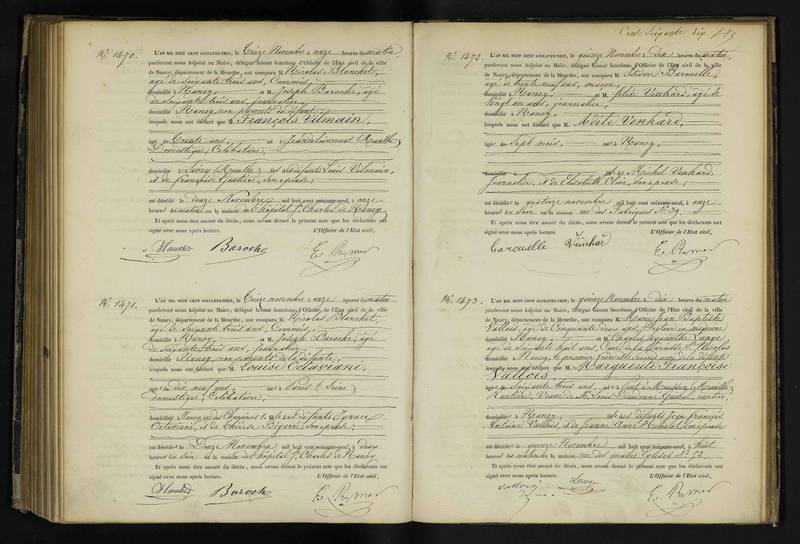 Cent Soixante dix
N.º 1470.
L'AN MIL HUIT CENT SOIXANTE-NEUF, le treize Novembre à onze heures du matin
pardevant nous Adjoint au Maire, délégué faisant fonctions d'Officier de l'État civil de la ville
de Nancy, département de la Meurthe, ont comparu M. Nicolas Blanchet,
âgé de Soixante trois ans, Commis,
domicilié à Nancy, et M. Joseph Baroche, âgé
de Soixante trois ans, journalier,
domicilié à Nancy, non parents du défunt,
lesquels nous ont déclaré que M. François Vilmain,
âgé de Trente ans, né à Jeandelaincourt Meurthe
Domestique, Célibataire,
domicilié à Sivry (Meurthe) fils de défunts Louis Vilmain,
et de Françoise son épouse,
est décédé le douze Novembre mil huit cent soixante-neuf, à onze
heures du matin en la maison de l'hôpital St. Charles de Nancy
Et après nous être assuré du décès, nous avons dressé le présent acte que les déclarants ont
signé avec nous après lecture. L'Officier de l'État civil,
Blanchet Baroche
N.º 1471.
L'AN MIL HUIT CENT SOIXANTE-NEUF, le treize novembre à onze heures du matin
pardevant nous Adjoint au Maire, délégué faisant fonctions d'Officier de l'État civil de la ville
de Nancy, département de la Meurthe, ont comparu M. Nicolas Blanchet,
âgé de Soixante trois ans, Commis,
domicilié à Nancy, et M. Joseph Baroche, âgé
de Soixante trois ans, journalier,
domicilié à Nancy, non parents de la défunte,
lesquels nous ont déclaré que M. Louise Octaviani,
âgée de dix neuf ans, née à Paris (Seine)
domestique, Célibataire,
domiciliée à Nancy, fille de défunts
Octaviani, et de Thérèse son épouse,
est décédée le Douze Novembre mil huit cent soixante-neuf, à deux
heures du soir en la maison de l'hôpital St. Charles de Nancy
Et après nous être assuré du décès, nous avons dressé le présent acte que les déclarants ont
signé avec nous après lecture. L'Officier de l'État civil,
Blanchet Baroche
N.º 1472.
L'AN MIL HUIT CENT SOIXANTE-NEUF, le quinze Novembre à Dix heures du matin,
pardevant nous Adjoint au Maire, délégué faisant fonctions d'Officier de l'État civil de la ville
de Nancy, département de la Meurthe, ont comparu M.
âgé de trente neuf ans, maçon,
domicilié à Nancy, et M. Vinhard, âgé de
Vingt ans, journalier,
domicilié à Nancy,
lesquels nous ont déclaré que M. Adèle Vinhard,
âgée de Sept mois, née à Nancy,
fille de Michel Vinhard
journalier, et de Elisabeth son épouse,
est décédée le quatorze novembre mil huit cent soixante-neuf, à onze
heures du soir en la maison rue des Fabriques Nº 39.
Et après nous être assuré du décès, nous avons dressé le présent acte que les déclarants ont
signé avec nous après lecture. L'Officier de l'État civil,
N.º 1473.
L'AN MIL HUIT CENT SOIXANTE-NEUF, le quinze Novembre à Dix heures du matin
pardevant nous Adjoint au Maire, délégué faisant fonctions d'Officier de l'État civil de la ville
de Nancy, département de la Meurthe, ont comparu M. Jean Baptiste
Vallois, âgé de Cinquante deux ans, Docteur en médecine
domicilié à Nancy, et M. Charles
âgé de Soixante huit ans, Curé de la Paroisse
domicilié à Nancy, le premier frère de la défunte
lesquels nous ont déclaré que M. Marguerite Françoise
Vallois,
âgée de Soixante trois ans, née à Pont à Mousson (Meurthe)
Rentière, Veuve de M. Louis
domiciliée à Nancy, fille des défunts Jean François
Antoine Vallois, et de Jeanne son épouse
est décédée le quinze Novembre mil huit cent soixante-neuf, à huit
heures du matin en la maison rue des quatre Eglises Nº 53.
Et après nous être assuré du décès, nous avons dressé le présent acte que les déclarants ont
signé avec nous après lecture. L'Officier de l'État civil,